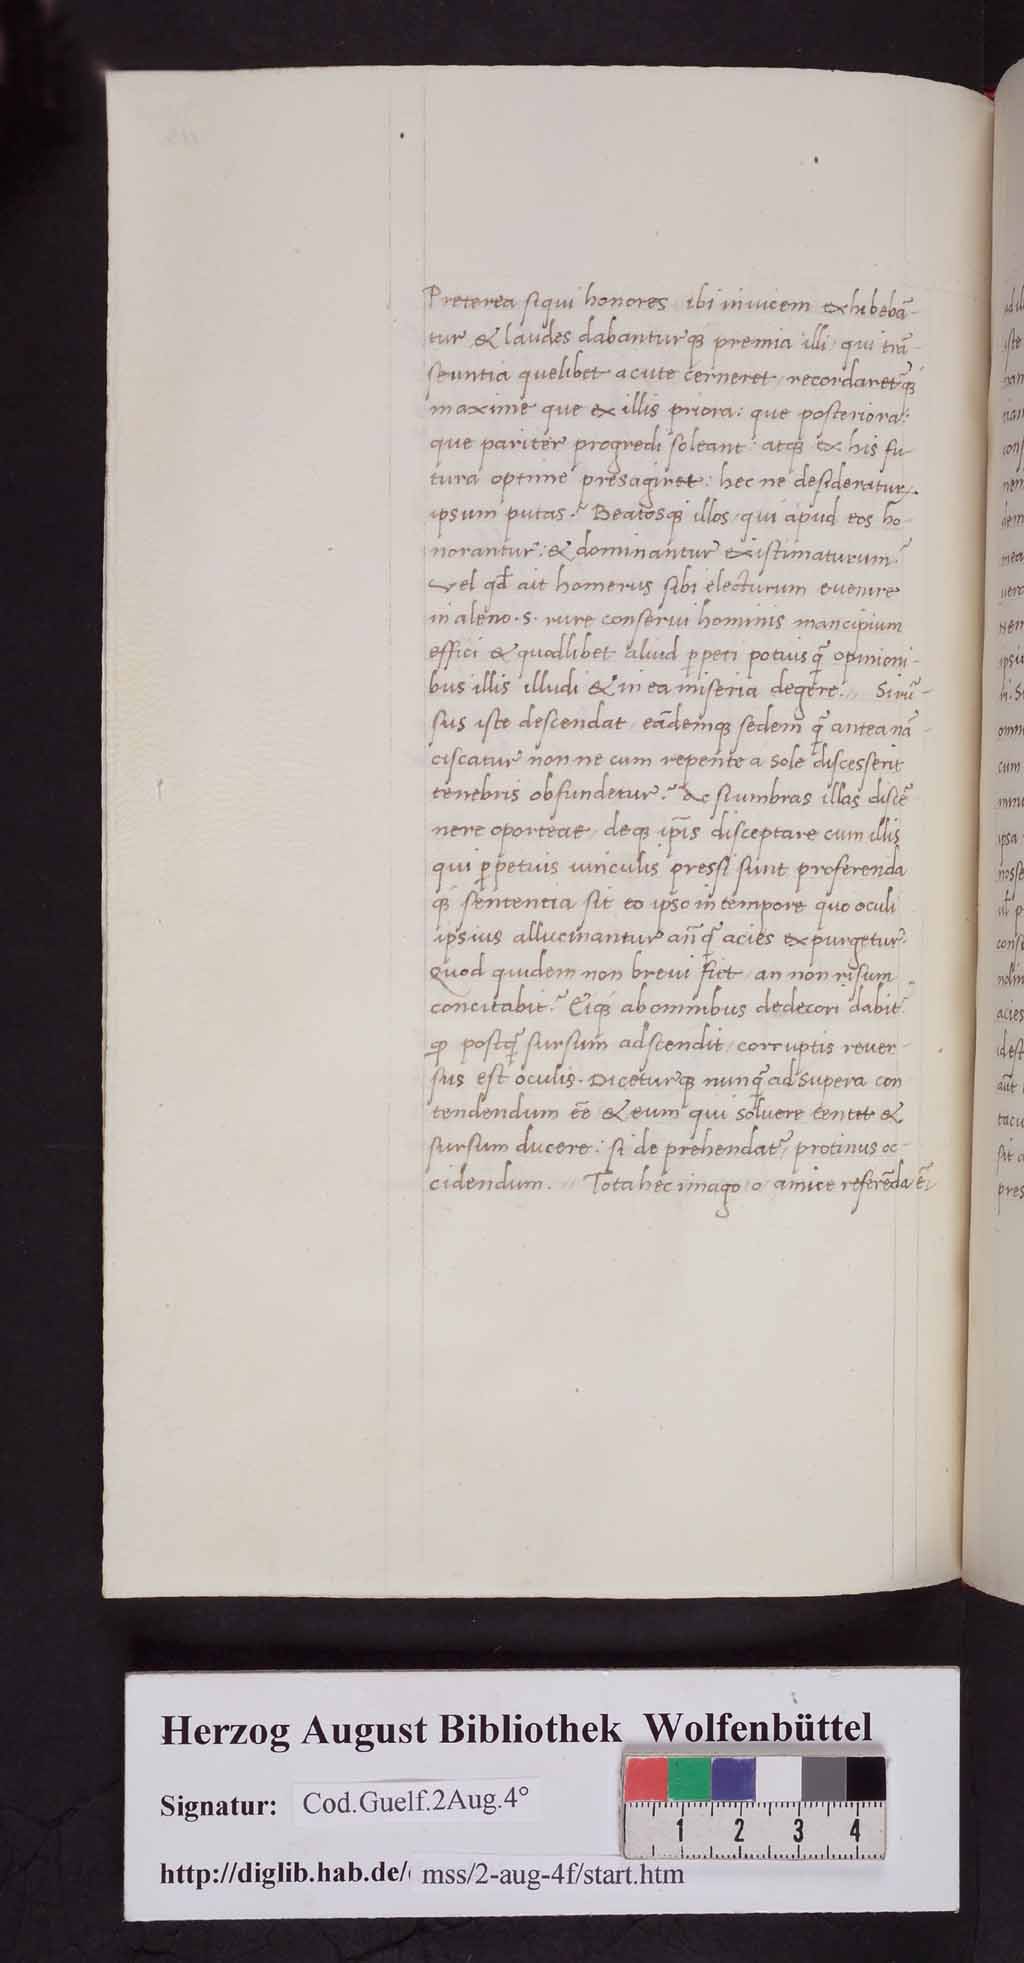 Preterea siqui honores ibi invicem exhibebā-
tur & laudes dabanturq̨ premia illi, qui trā-
seuntia quelibet acute cerneret, recordaretq̨
maxime que ex illis priora: que posteriora:
que pariter progredi soleant: atq̨ ex his fu-
tura optime presagiret: hec ne desideratur.
ipsum putas? Beatosq̨ illos, qui apud eos ho-
norantur: & dominantur existimaturum?
vel qd̄ ait homerus sibi electurum evenire
in aleno .s. rure conservi hominis mancipium
effici & quodlibet aliud ꝑpeti potius q̄ opinioni-
bus illis illudi & in ea miseria degere. Si rū-
sus iste descendat, eādemq̨ sedem q̄ antea nā-
ciscatur non ne cum repente a sole discesserit
tenebris obfundetur? Ac si umbras illas discē
nere oporteat, deq̨ ip̄is disceptare cum illis
qui ꝑpetuis vinculis pressi sunt proferenda
q̨ sententia sit eo ipso in tempore quo oculi
ipsius allucinantur an̄q̄ acies expurgetur.
Quod quidem non brevi fiet, an non risum
concitabit? Eiq̨ ab omnibus dedecori dabit̄
ꝙ postq̄ sursum adscendit, corruptis rever-
sus est oculis. Diceturq̨ nunq̄ ad supera con
tendendum ēe & eum qui solvere tentet &
sursum ducere: si deprehendat̄, protinus oc-
cidendum. Tota hec imago o amice referēda ē
Herzog August Bibliothek Wolfenbüttel
Signatur: Cod.Guelf.2Aug.4°
1 2 3 4
http://diglib.hab.de/ mss/2-aug-4f/start.htm